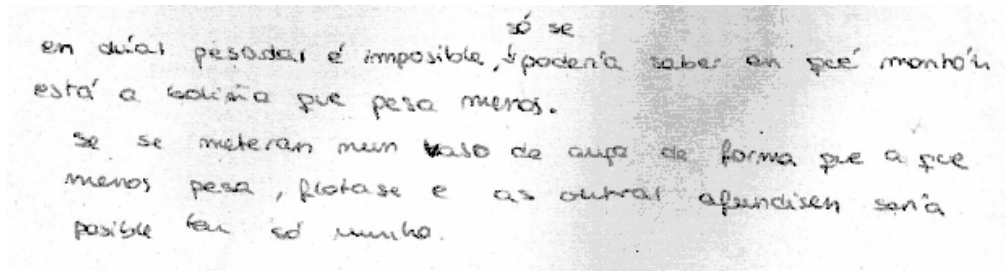 só se
en dúas pesadas é imposible, podería saber en qué montón
está a boliña que pesa menos.
Se se meteran nun vaso de auga de forma que a que
menos pesa, flotase e as outras afundisen sería
posible en só unha.